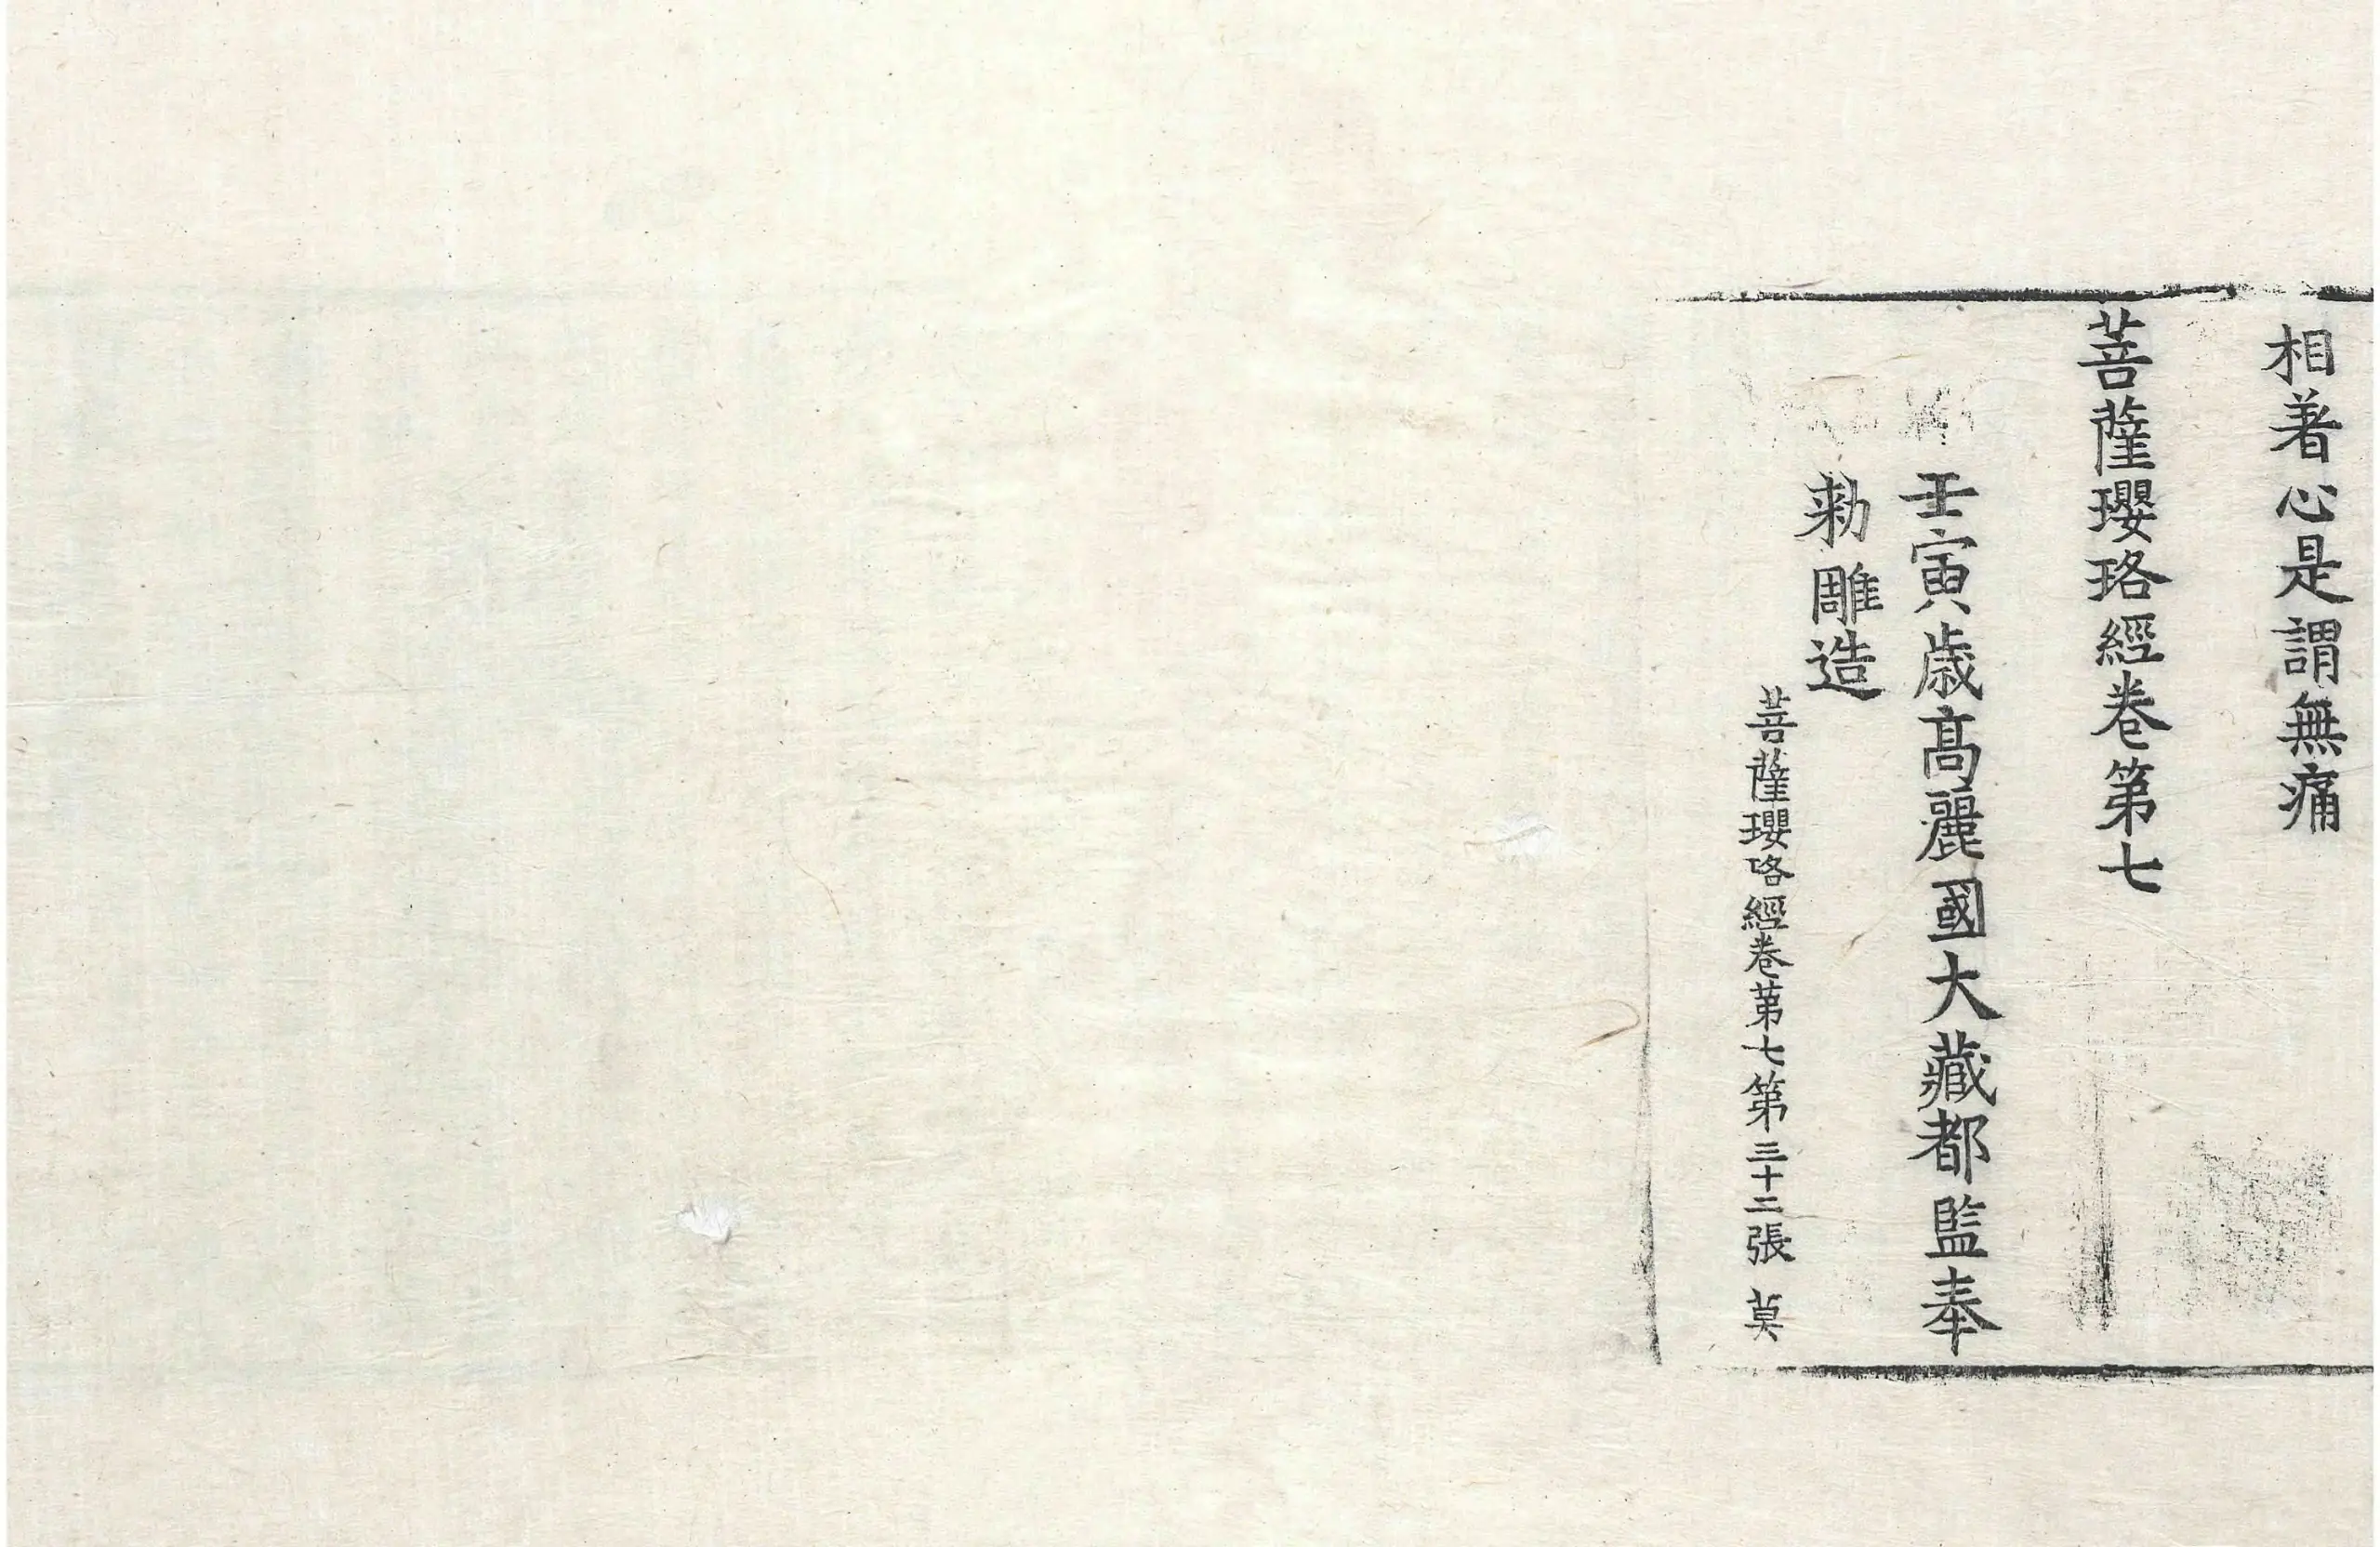 相著心是謂無痛
菩薩瓔珞經卷第七
壬寅歳髙麗國大藏都監奉
勑雕造
菩薩瓔珞經卷第七第三十二張 莫